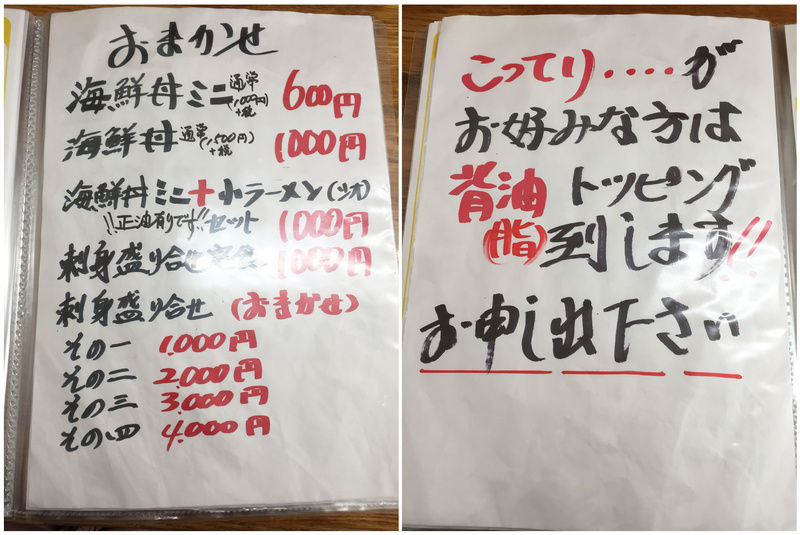 おまかせ
海鮮丼ミニ 通常(1,000円)+税 600円
海鮮丼 通常(1,500円)+税 1000円
海鮮丼ミニ+小ラーメン(シオ)
!!正油有りです!!セット 1000円
刺身盛り合せ定食 1000円
刺身盛り合せ(おまかせ)
その一 1.000円
その二 2.000円
その三 3.000円
その四 4.000円
こってり・・・・が
お好みな方は
背油トッピング
(脂)到します!!
お申し出下さい